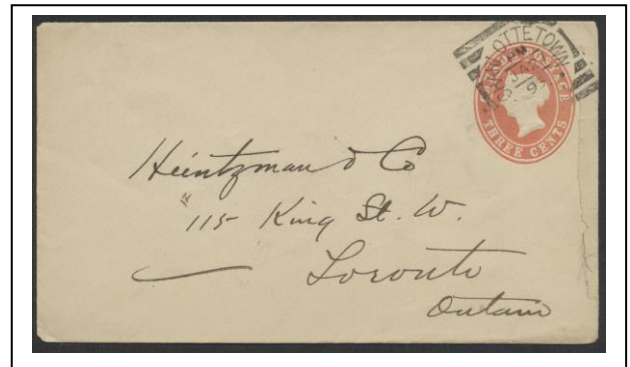 OTTETOWN
POSTAGE
THREE CENTS
Heintzman & Co
115 King St. W.
Toronto
Ontario